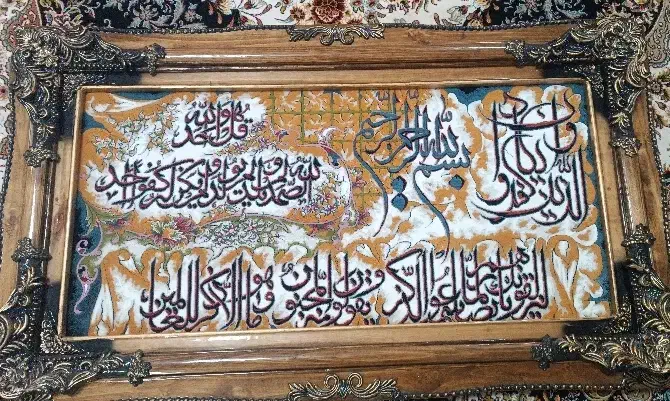 بسم الله الرحمن الرحیم
وان یکاد
الذین کفروا
لیزلقونک بابصارهم لما سمعوا الذکر و یقولون انه لمجنون و ما هو الا ذکر للعالمین
قل هو الله احد
الله الصمد لم یلد و لم یولد و لم یکن له کفوا احد